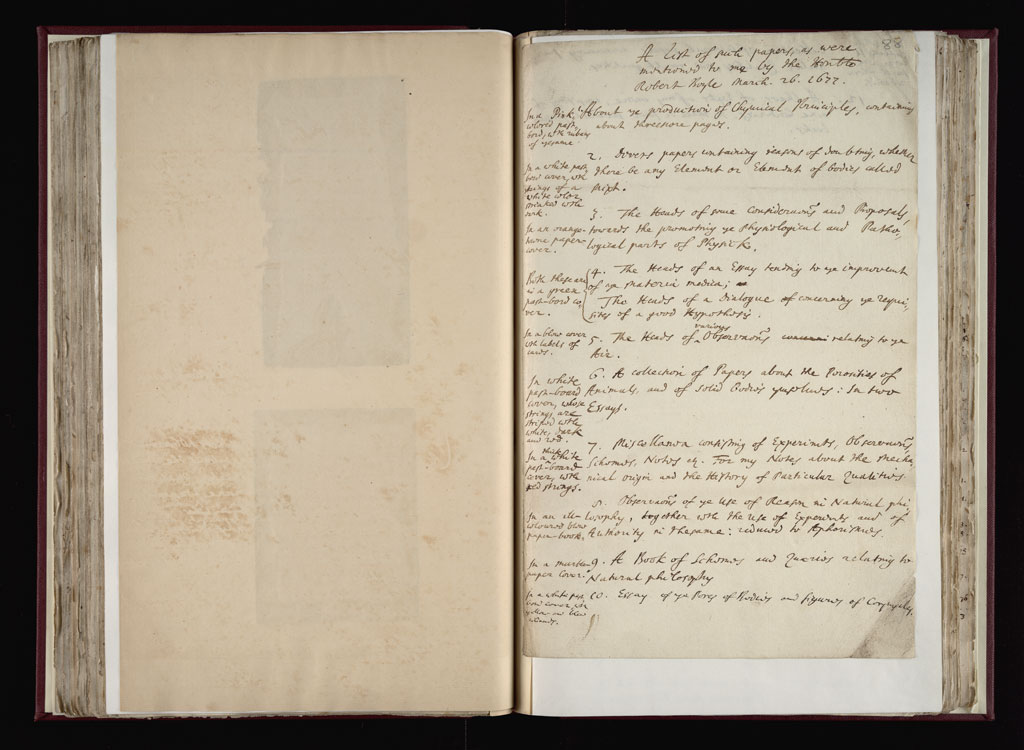 88
A List of such papers, as were
mentioned to me by the Honble
Robert Boyle March. 26. 1677.
In a Pink
colored past
bord, with
of ye same
1. About ye production of Chymical Principles, containing
about threescore pages.
In a white past
bord cover, with
strings of a
white color
with
2. Divers papers containing reasons of doubting, whether
there be any Element or Element of bodies called
mixt.
In an orange
tawne paper
cover.
3. The Heads of some Considerations and Proposals,
towards the promoting ye Physiological and Patho-
logical parts of Physick.
Both these are
in a green
past-bord co-
ver.
4. The Heads of an Essay tending to ye improvemt
of ye materia medica;
The Heads of a Dialogue of concerning ye requi-
sites of a good Hypothesis.
In a blew cover
with labels of
5. The Heads of various Observaons relating to ye
Air.
In white
past-board
cover, whose
strings are
striped with
white, dark
and red.
6. A collection of Papers about the Porosities of
Animals, and of solid bodies: In two
Essays.
In a thick white
past-board
cover, with
red strings.
7. Miscellanea consisting of Experimts, Observaons,
Schemes, Notes etc. For my Notes about the mecha-
nical origin and the History of Particular Qualities.
In an ill-
coloured blew
paper-book.
8. Observaons of ye Use of Reason in Natural phi-
losophy, together with the use of Experimts and of
Authority in the same: reduced to Aphorismes.
In a
paper cover.
9. A Book of Schemes and Quaeries relating to
Natural philosophy
In a white past
bord cover, with
yellow and blew
10. Essay of ye Pores of Bodies and figures of Corpuscles.